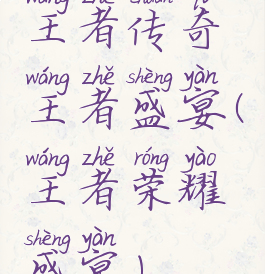 王者传奇
wáng zhě shèng yàn
王者盛宴(
wáng zhě róng yào
王者荣耀
shèng yàn
盛宴)